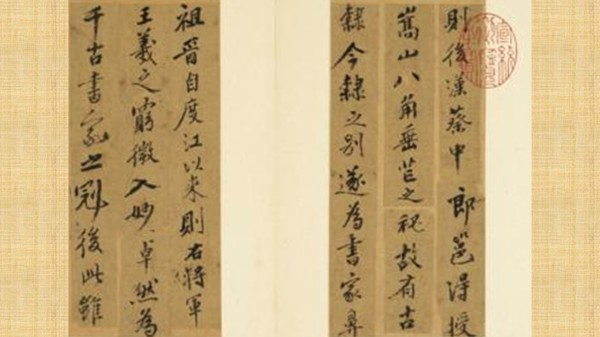 則後漢蔡中郎邕得授
嵩山八角垂芒之祕故有古
隸今隸之別遂為書家鼻
祖晉自度江以來則右將軍
王羲之窮微入妙卓然為
千古書家之冠後此雖